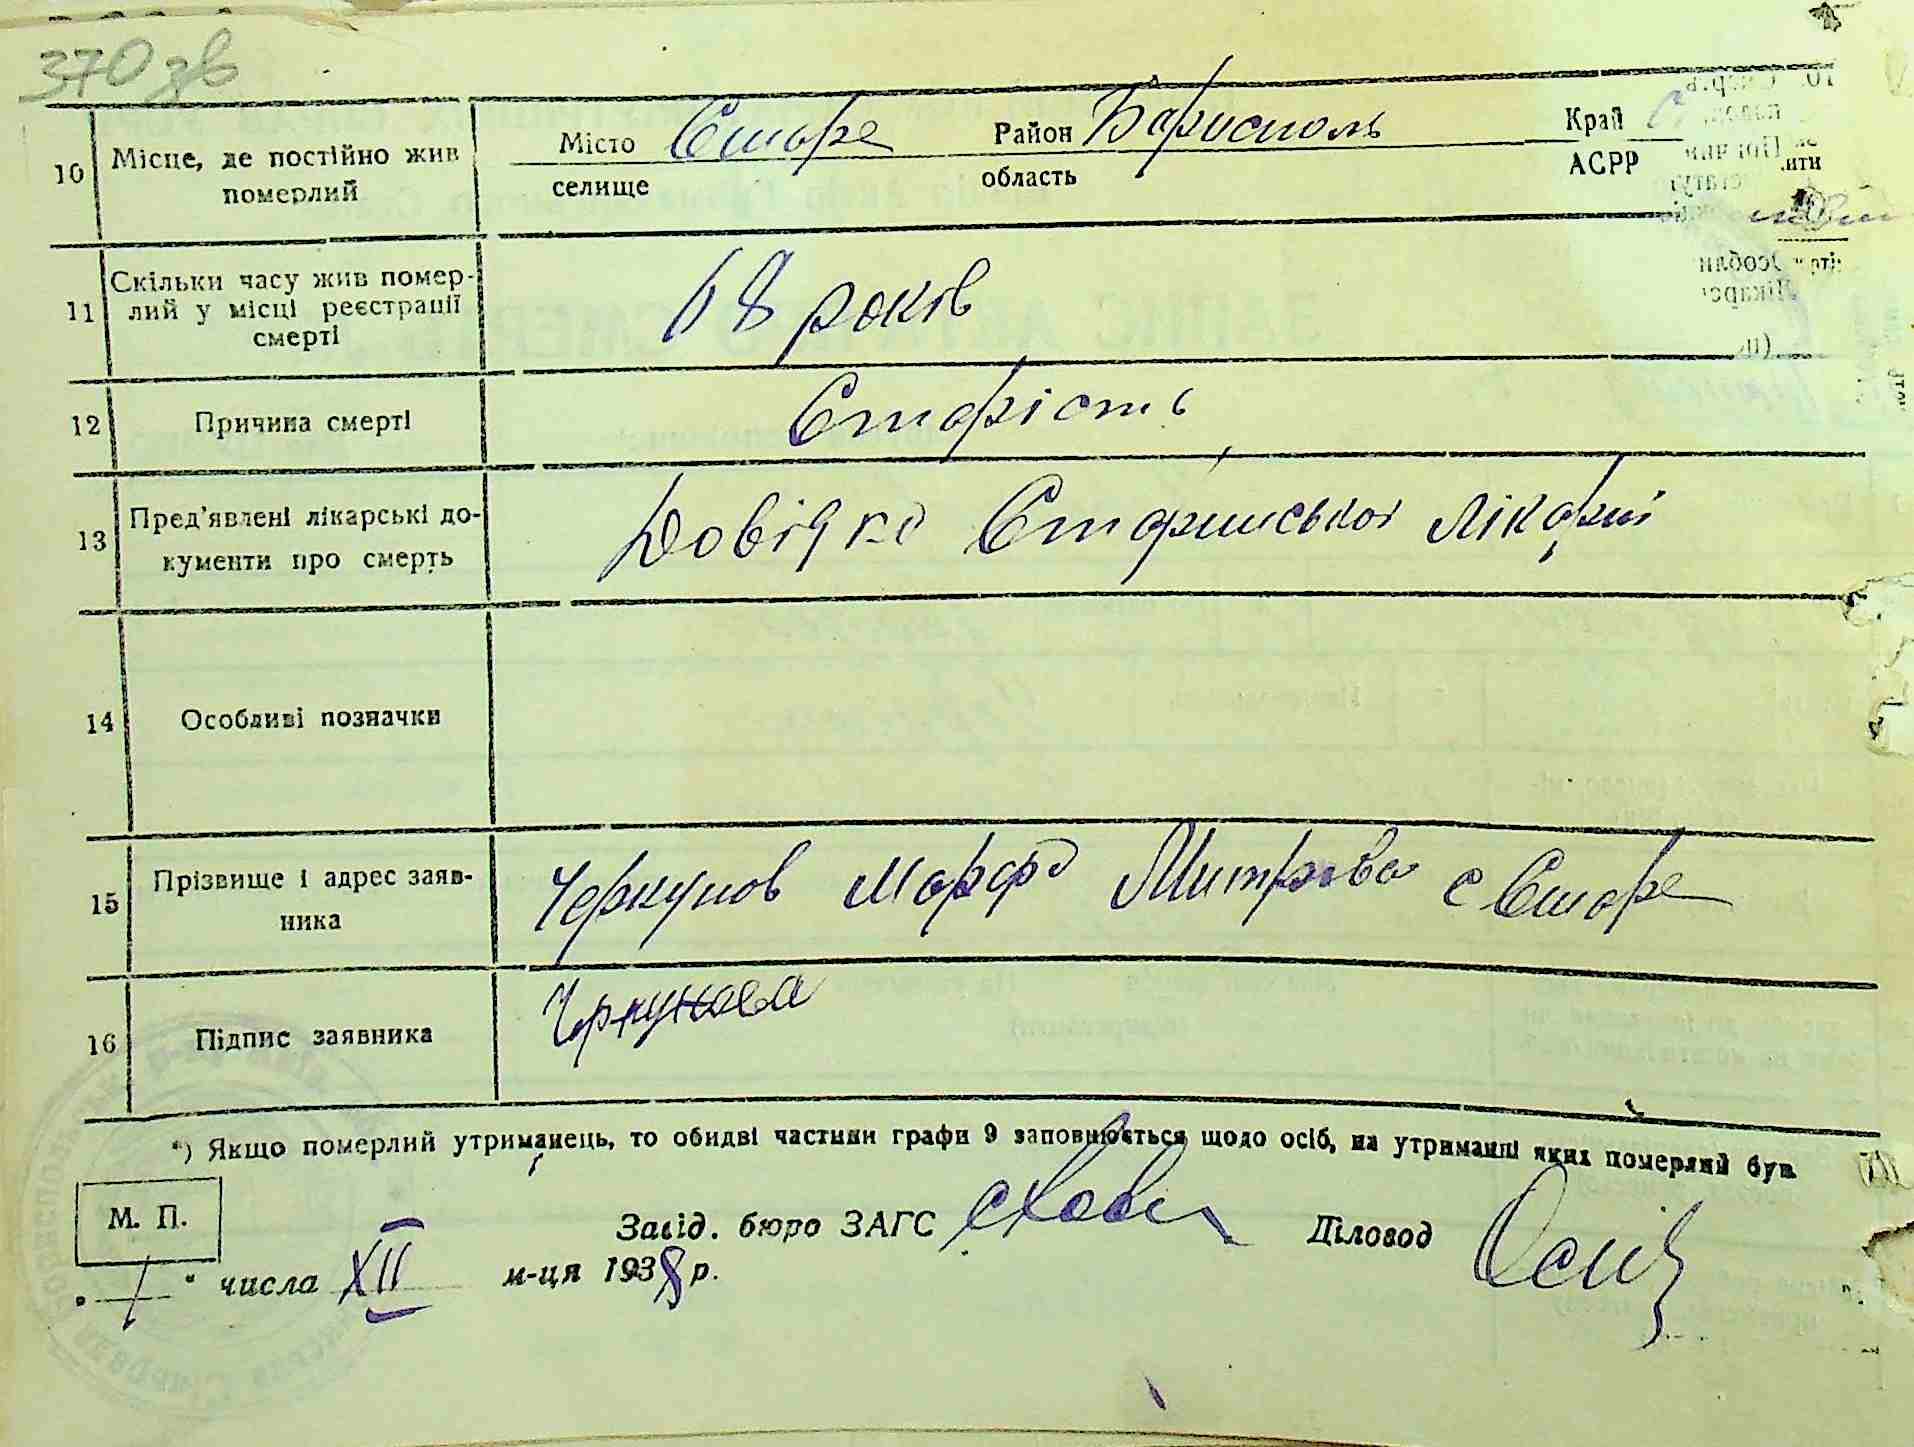 370 зв
10 Місце, де постійно жив померлий
Місто Старе Район Бориспол Край
селище область АСРР
11 Скільки часу жив помер-
лий у місці реєстрації
смерті
68 років
12 Причина смерті Старість
13 Пред'явлені лікарські до-
кументи про смерть
Довідка Старинської лікарні
14 Особливі позначки
15 Прізвище і адрес заяв-
ника
Черкунов Марфа Митрова с Старе
16 Підпис заявника Чркунова
*) Якщо померлий утриманець, то обидві частини графи 9 заповнюється щодо осіб, на утриманні яких померлий був
М. П.
Завід. бюро ЗАГС Діловод
"1" числа XII м-ця 1938 р.